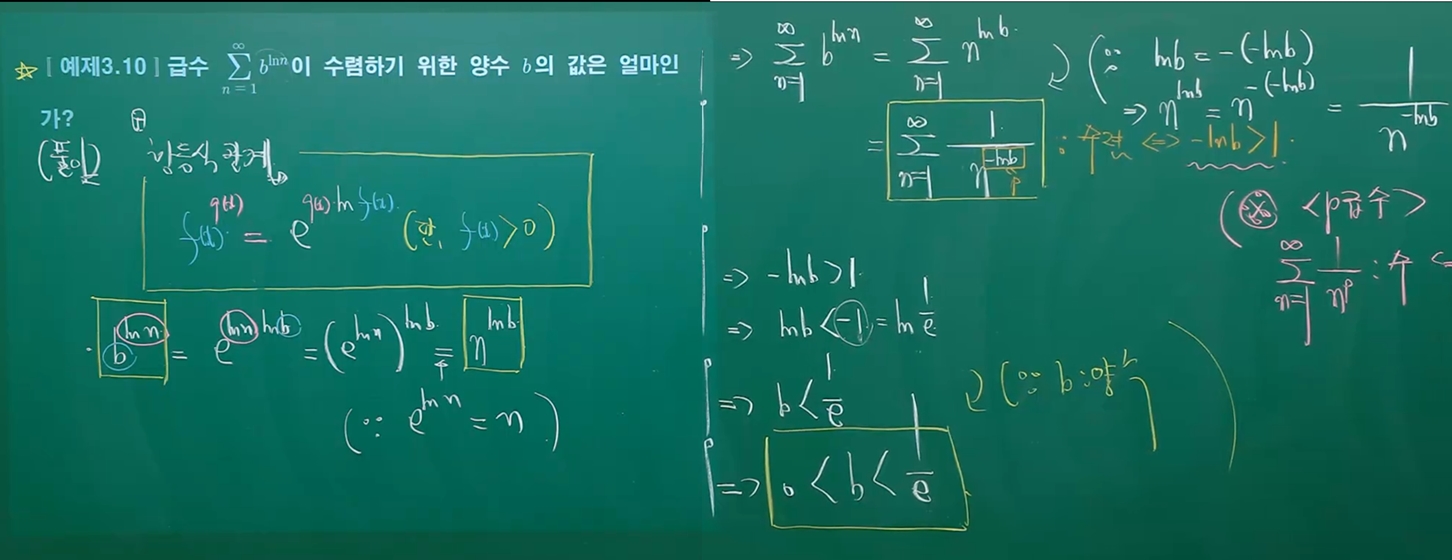 [예제3.10] 급수 $\sum_{n=1}^{\infty} b^{\ln n}$이 수렴하기 위한 양수 b의 값은 얼마인
가?
(풀이) 항등식 관계
f(x)^{g(x)} = e^{g(x)·ln f(x)} (단, f(x) > 0)
b^{ln n} = e^{ln n·ln b} = (e^{ln n})^{ln b} = n^{ln b}
(∵ e^{ln n} = n)
=> $\sum_{n=1}^{\infty} b^{\ln n} = \sum_{n=1}^{\infty} n^{\ln b}$
(∵ ln b = -(-ln b)
=> n^{ln b} = n^{-(-ln b)} = $\frac{1}{n^{-\ln b}}$
= $\sum_{n=1}^{\infty} \frac{1}{n^{-\ln b}}$ : 수렴 <=> -ln b > 1.
p
(※ <p급수>
$\sum_{n=1}^{\infty} \frac{1}{n^p}$ : 수 <=
=> -ln b > 1
=> ln b < -1 = ln $\frac{1}{e}$
=> b < $\frac{1}{e}$
(∵ b : 양수)
=> 0 < b < $\frac{1}{e}$